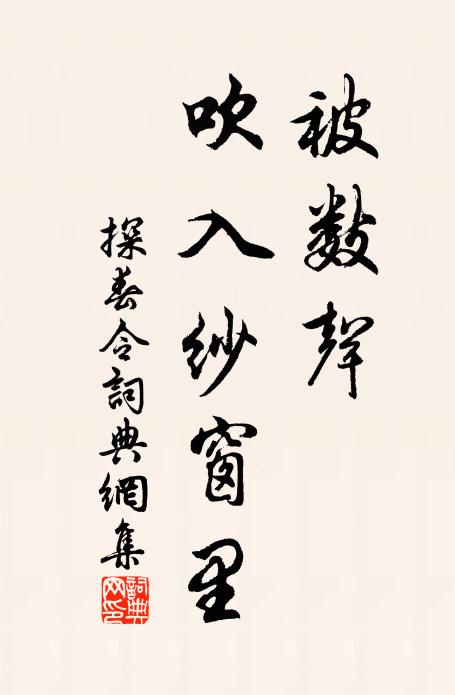 被數聲
吹入紗窗里
探春令詞典網集
詞典網印